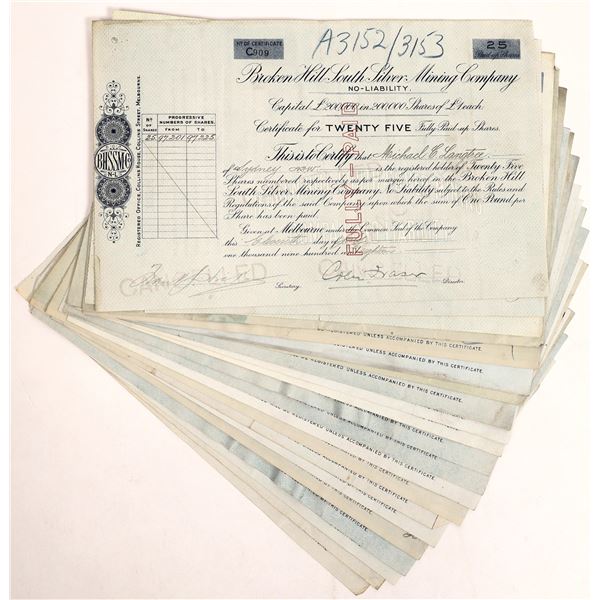 Nº OF CERTIFICATE
C909
A3152/3153
25
Paid-up Shares
Broken Hill South Silver Mining Company
NO-LIABILITY.
Capital £200,000 in 200,000 Shares of £1 each.
Certificate for TWENTY FIVE Fully Paid-up Shares.
This is to Certify that Michael E. Langtree
of Sydney NSW is the registered holder of Twenty Five
Shares numbered respectively as per margin hereof in the Broken Hill
South Silver Mining Company, No Liability subject to the Rules and
Regulations of the said Company upon which the sum of One Pound per
Share has been paid.
Given at Melbourne under the Common Seal of the Company
this day of
one thousand nine hundred and
Secretary.
Colin Fraser
Director.
FULLY-PAID
CANCELLED
CANCELLED
Nº OF SHARES
PROGRESSIVE NUMBERS OF SHARES.
FROM TO
25 97,201 97,225
BHSSMCo
N-L
REGISTERED OFFICE, COLLINS HOUSE, COLLINS STREET, MELBOURNE.
REGISTERED UNLESS ACCOMPANIED BY THIS CERTIFICATE.
REGISTERED UNLESS ACCOMPANIED BY THIS CERTIFICATE.
REGISTERED UNLESS ACCOMPANIED BY THIS CERTIFICATE.
REGISTERED UNLESS ACCOMPANIED BY THIS CERTIFICATE.
REGISTERED UNLESS ACCOMPANIED BY THIS CERTIFICATE.